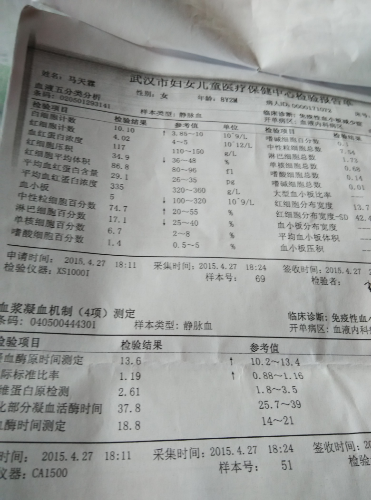 武汉市妇女儿童医疗保健中心检验报告单
姓名：马天霖 性别：女 年龄：8Y2M 病人ID:0000171073
血液五分类分析 临床诊断：免疫性血小板减少症
条码：020501293141 样本类型：静脉血 开单病区：血液内科病
检验项目 检验结果 参考值 单位 检验项目
白细胞计数 10.10 ↑ 3.85~10 10^9/L 嗜碱细胞百分数 0.1
红细胞计数 4.02 4~5 10^12/L 中性粒细胞总数 7.56
血红蛋白浓度 117 110~150 g/L 淋巴细胞总数 1.73
红细胞压积 34.9 ↓ 36~48 % 单核细胞总数 0.68
红细胞平均体积 86.8 80~90 fl 嗜酸细胞总数 0.14
平均血红蛋白含量 29.1 26~35 pg 嗜碱细胞总数 0.01
平均血红蛋白浓度 335 320~360 g/L 大型血小板比率
血小板 5 ↓ 100~320 10^9/L 红细胞分布宽度 13.7
中性粒细胞百分数 74.7 ↑ 20~55 % 红细胞分布宽度-SD 42.4
淋巴细胞百分数 17.1 ↓ 25~40 % 血小板分布宽度
单核细胞百分数 6.7 2~8 % 平均血小板体积
嗜酸细胞百分数 1.4 0.5~5 % 血小板压积
申请时间：2015.4.27 18:11 采集时间：2015.4.27 18:24 签收时间：2015.4.27
检验仪器：XS1000I 样本号： 69 检验者：
血浆凝血机制（4项）测定 临床诊断：免疫性血小
条码：040500444301 样本类型：静脉血 开单病区：血液内科病
检验项目 检验结果 参考值
血酶原时间测定 13.6 ↑ 10.2~13.4
际标准化比率 1.19 ↑ 0.88~1.16
维蛋白原检测 2.61 1.8~3.5
化部分凝血活酶时间 37.8 25.7~39
血酶时间测定 18.8 14~21
时间：2015.4.27 18:11 采集时间：2015.4.27 18:24 签收时间：20
仪器：CA1500 样本号： 51 检验